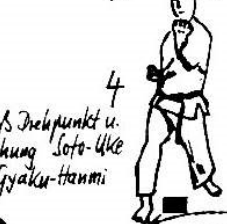 4
ß Drehpunkt u.
hung Soto-Uke
Gyaku-Hanmi